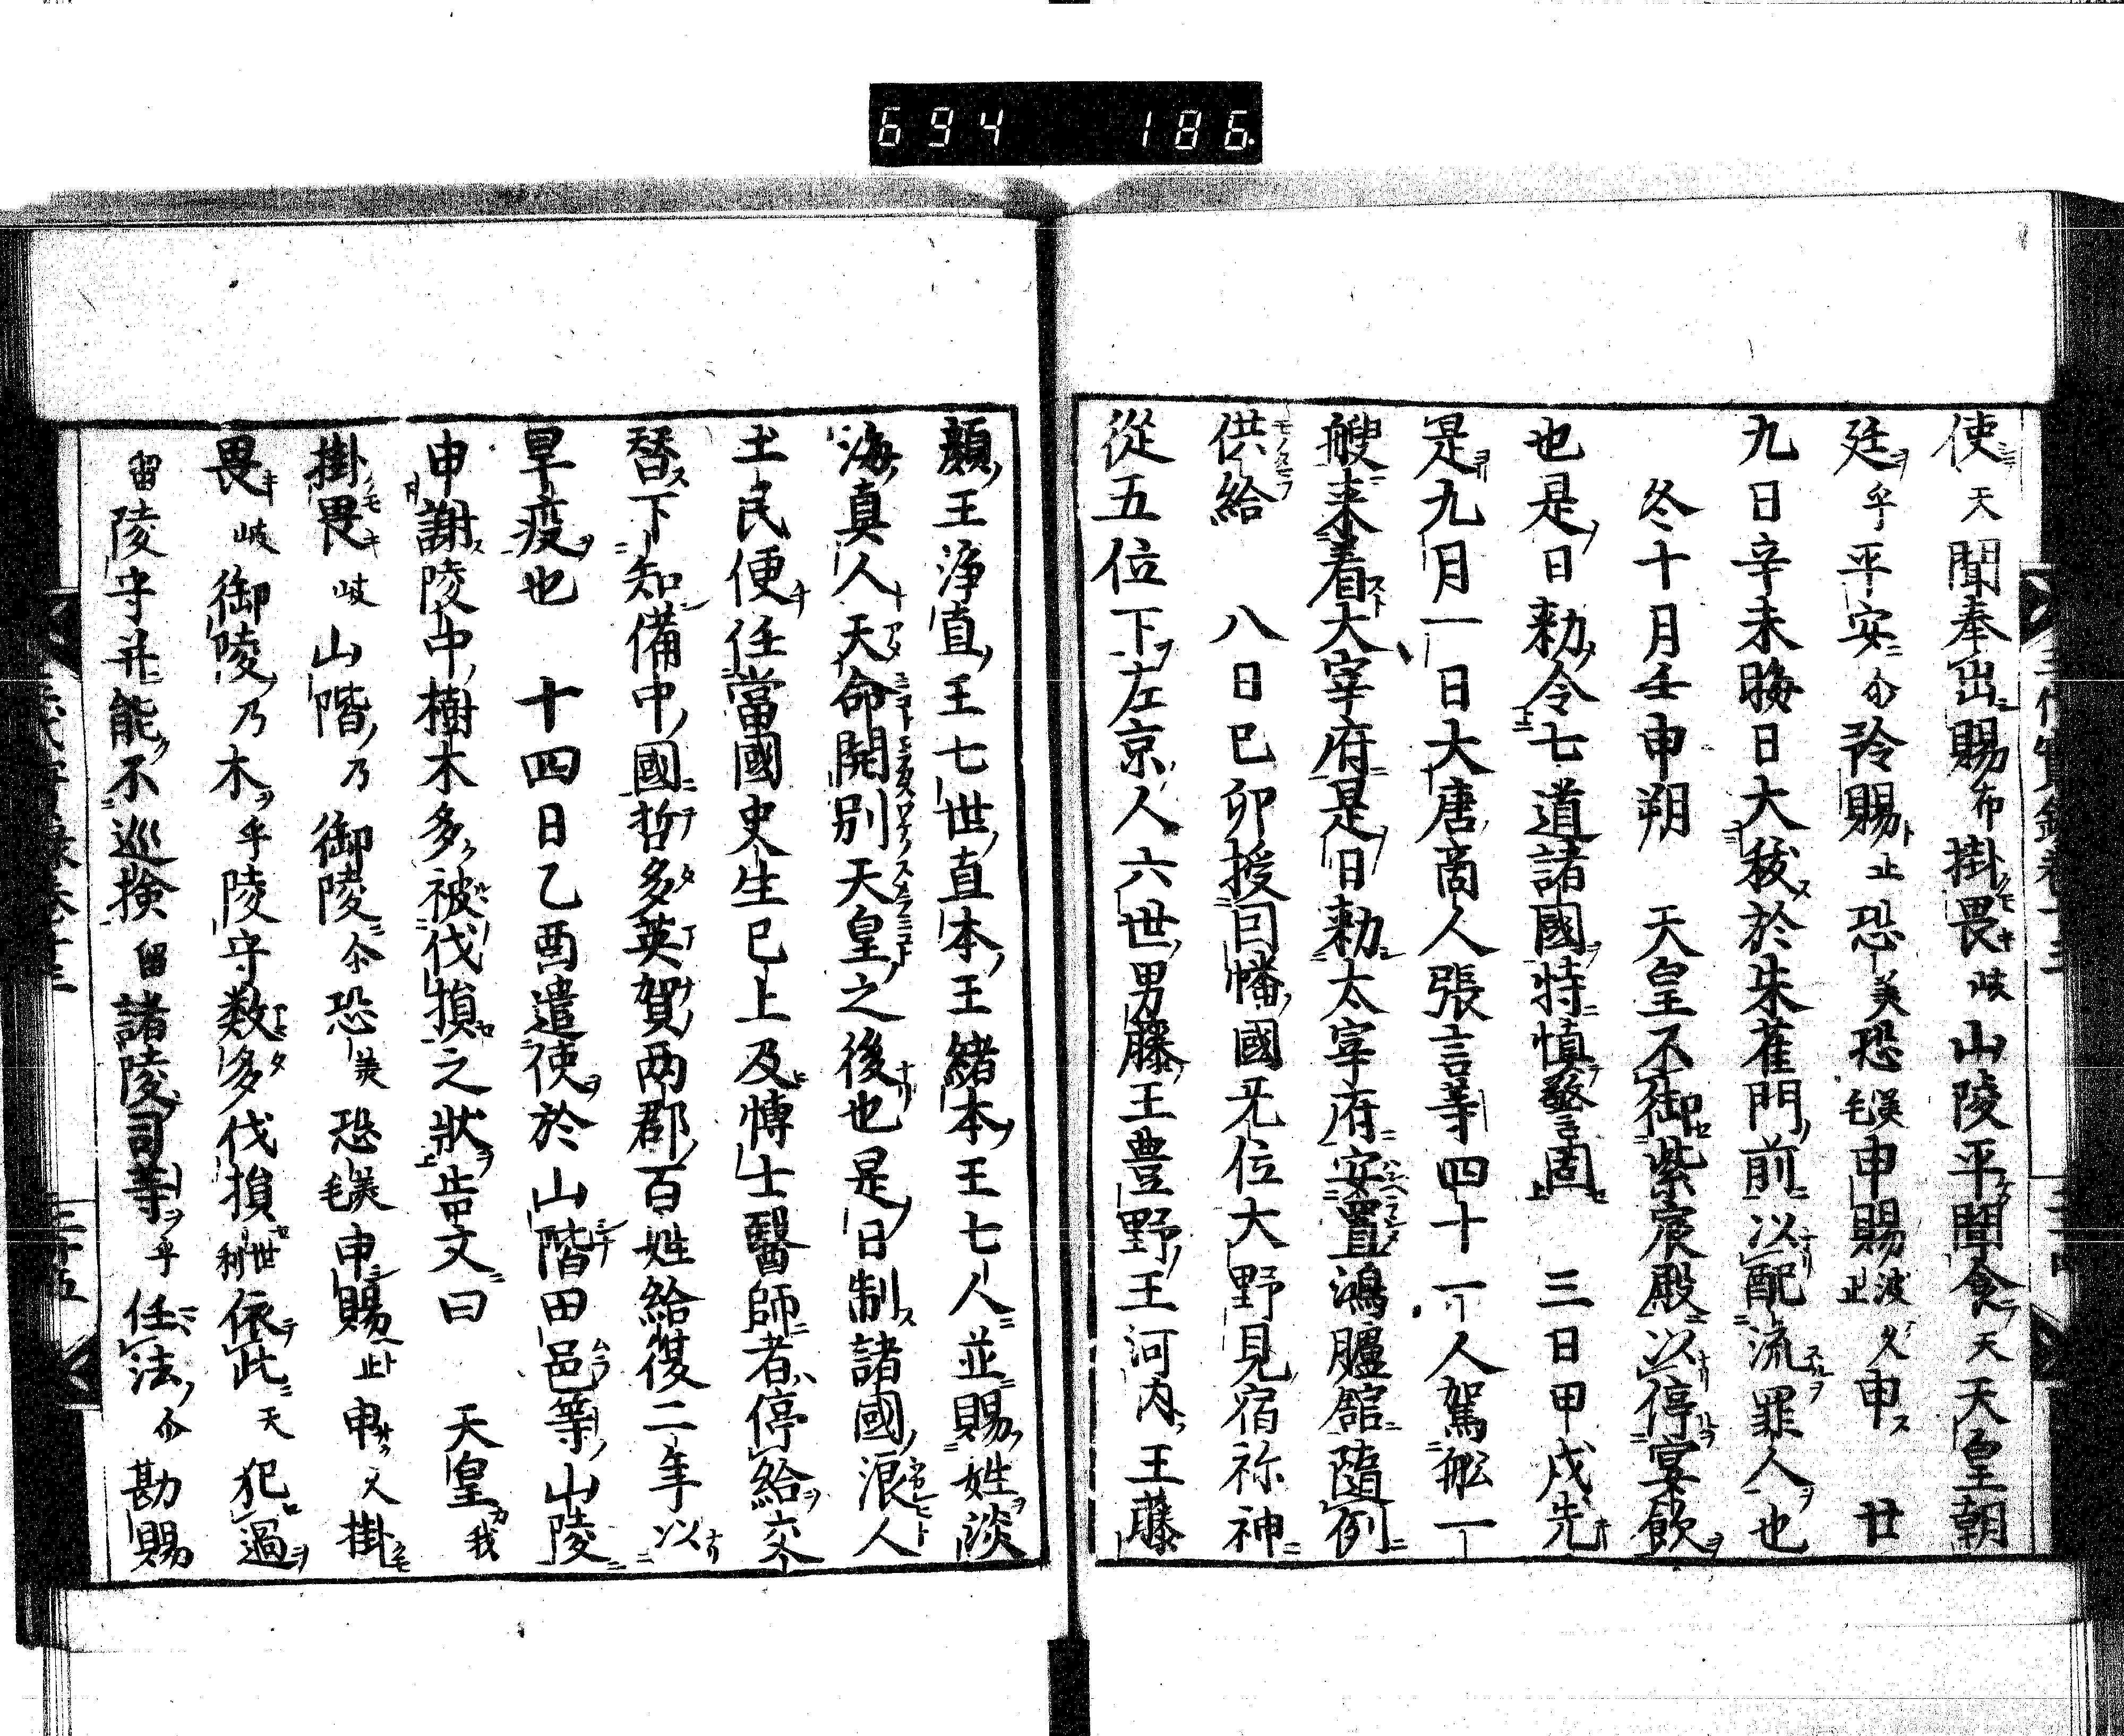 694 186
使天聞奉出賜布掛畏岐山陵平聞食天天皇朝
廷乎平安尒矜賜止恐美恐美毛申賜波久申 廿
九日辛未晦日大秡於朱雀門前以配流罪人也
冬十月壬申朔 天皇不御紫宸殿以停宴飲
也是日勅令七道諸國特慎警固 三日甲戌先
是九月一日大唐商人張言等四十一人駕舩一
艘来着大宰府是日勅太宰府安置鴻臚舘隨例
供給 八日己卯授因幡國无位大野見宿祢神
從五位下左京人六世男藤王豊野王河内王藤
顔王淨直王七世直本王緒本王七人並賜姓淡
海真人天命開別天皇之後也是日制諸國浪人
土民便任當國史生已上及博士醫師者停給交
替下知備中國哲多英賀两郡百姓給復二年以
旱疫也 十四日乙酉遣使於山階田邑等山陵
申謝陵中樹木多被伐損之狀告文曰 天皇我
掛畏岐山階乃御陵尒恐美恐美毛申賜止申久掛
畏岐御陵乃木乎陵守数多伐損世利依此天犯過
留陵守并能不巡検留諸陵司等乎任法尒勘賜